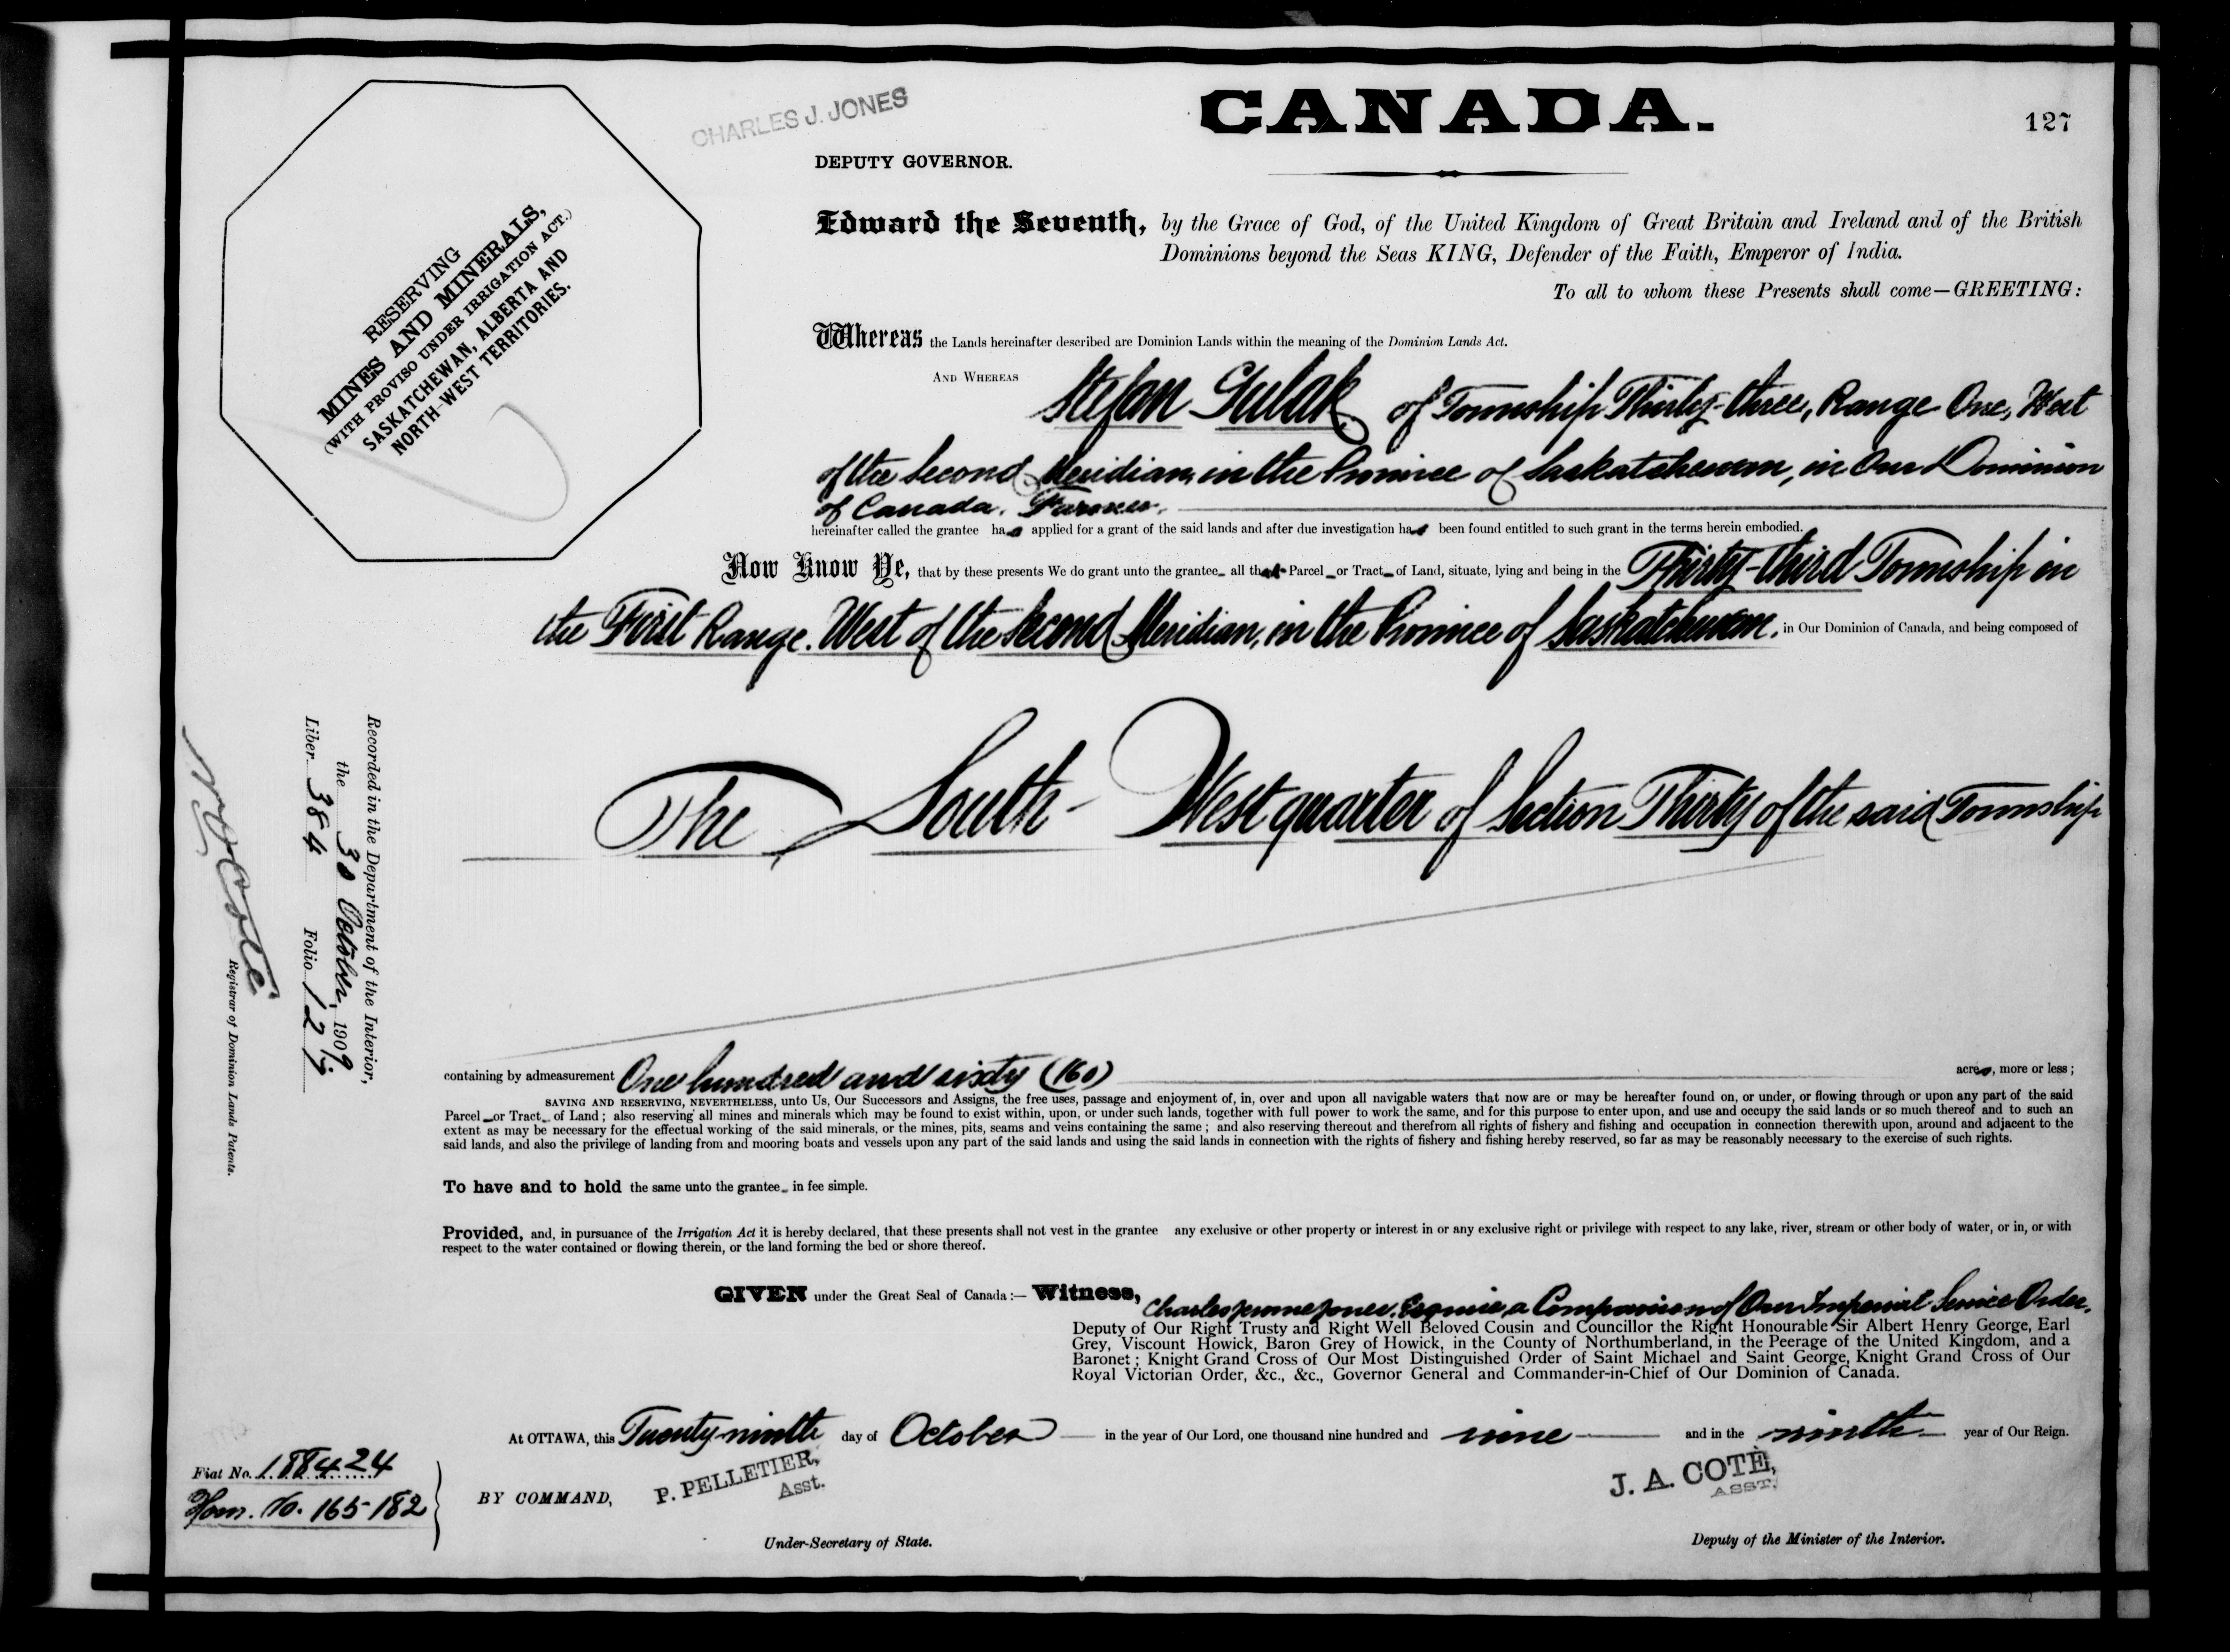 CHARLES J. JONES
CANADA.
127
DEPUTY GOVERNOR.
RESERVING
MINES AND MINERALS,
(WITH PROVISO UNDER IRRIGATION ACT.)
SASKATCHEWAN, ALBERTA AND
NORTH-WEST TERRITORIES.
Edward the Seventh, by the Grace of God, of the United Kingdom of Great Britain and Ireland and of the British
Dominions beyond the Seas KING, Defender of the Faith, Emperor of India.
To all to whom these Presents shall come—GREETING:
Whereas the Lands hereinafter described are Dominion Lands within the meaning of the Dominion Lands Act.
AND WHEREAS Stefan Gulak of Township Thirty-three, Range One, West
of the Second Meridian, in the Province of Saskatchewan, in Our Dominion
of Canada, Farmer,
hereinafter called the grantee has applied for a grant of the said lands and after due investigation has been found entitled to such grant in the terms herein embodied.
Now Know Ye, that by these presents We do grant unto the grantee all that Parcel or Tract of Land, situate, lying and being in the Thirty-third Township in
the First Range, West of the Second Meridian, in the Province of Saskatchewan, in Our Dominion of Canada, and being composed of
The South-West quarter of Section Thirty of the said Township
Recorded in the Department of the Interior,
the 30 October, 1909
Liber 384 Folio 127
N. O. Coté
Registrar of Dominion Lands Patents.
containing by admeasurement One hundred and sixty (160) acres, more or less;
SAVING AND RESERVING, NEVERTHELESS, unto Us, Our Successors and Assigns, the free uses, passage and enjoyment of, in, over and upon all navigable waters that now are or may be hereafter found on, or under, or flowing through or upon any part of the said
Parcel or Tract of Land; also reserving all mines and minerals which may be found to exist within, upon, or under such lands, together with full power to work the same, and for this purpose to enter upon, and use and occupy the said lands or so much thereof and to such an
extent as may be necessary for the effectual working of the said minerals, or the mines, pits, seams and veins containing the same; and also reserving thereout and therefrom all rights of fishery and fishing and occupation in connection therewith upon, around and adjacent to the
said lands, and also the privilege of landing from and mooring boats and vessels upon any part of the said lands and using the said lands in connection with the rights of fishery and fishing hereby reserved, so far as may be reasonably necessary to the exercise of such rights.
To have and to hold the same unto the grantee in fee simple.
Provided, and, in pursuance of the Irrigation Act it is hereby declared, that these presents shall not vest in the grantee any exclusive or other property or interest in or any exclusive right or privilege with respect to any lake, river, stream or other body of water, or in, or with
respect to the water contained or flowing therein, or the land forming the bed or shore thereof.
GIVEN under the Great Seal of Canada:— Witness, Charles Jerome Jones, Esquire, a Companion of Our Imperial Service Order,
Deputy of Our Right Trusty and Right Well Beloved Cousin and Councillor the Right Honourable Sir Albert Henry George, Earl
Grey, Viscount Howick, Baron Grey of Howick, in the County of Northumberland, in the Peerage of the United Kingdom, and a
Baronet; Knight Grand Cross of Our Most Distinguished Order of Saint Michael and Saint George, Knight Grand Cross of Our
Royal Victorian Order, &c., &c., Governor General and Commander-in-Chief of Our Dominion of Canada.
At OTTAWA, this Twenty-ninth day of October in the year of Our Lord, one thousand nine hundred and nine and in the ninth year of Our Reign.
Fiat No. 188424
Hom. No. 165182
BY COMMAND,
P. PELLETIER,
Asst.
J. A. COTÉ,
ASST.
Under-Secretary of State.
Deputy of the Minister of the Interior.